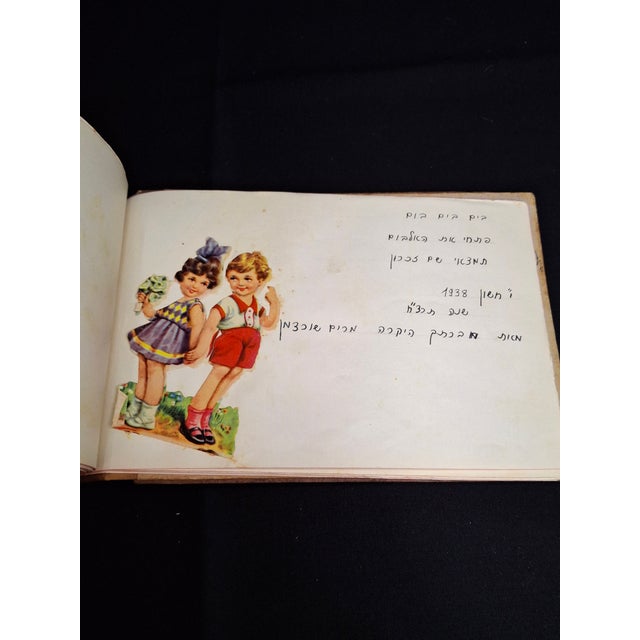 בים בים בום
פתחי את האלבום
תמצאי שם זכרון
י' חשון 1938
שנה תרצ"ח
מאת חברתך היקרה מרים שורצמן